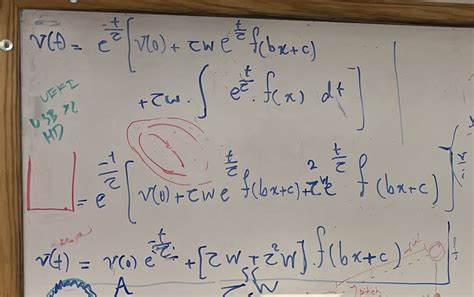 v(t) = e^{-t/τ} [ v(0) + τw e^{t/τ} f(bx+c)
+ τw · ∫ e^{t/τ} · f(x) dt ]
USB x2
HD
= e^{-t/τ} [ v(0) + τw e^{t/τ} f(bx+c) + τ²w e^{t/τ} f(bx+c) ]
v(t) = v(0) e^{-t/τ} + [τw + τ²w] · f(bx+c)
A